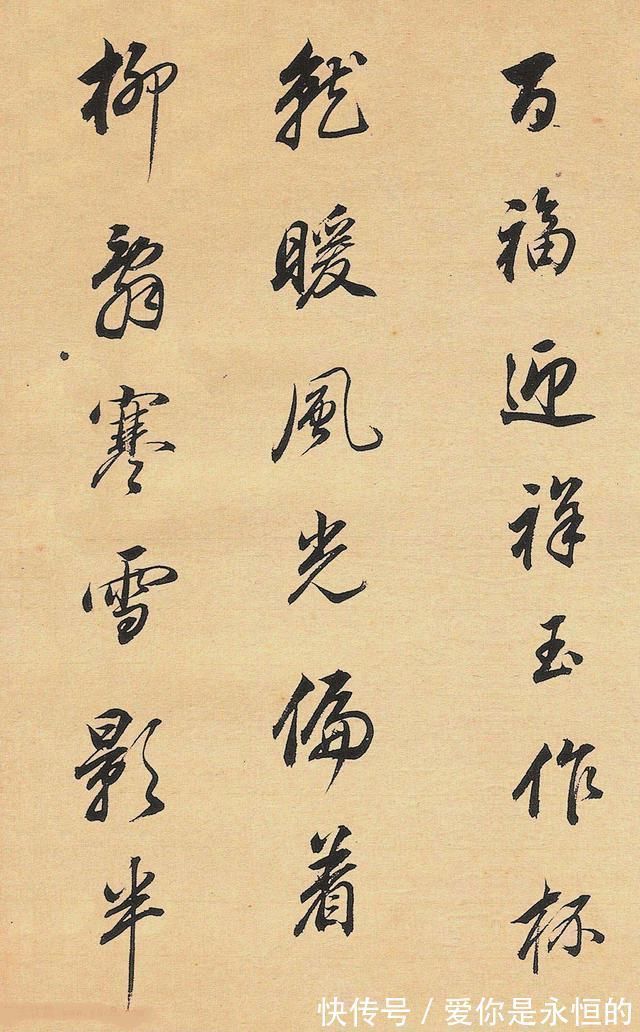 百福迎祥玉作杯
就暖風光偏着
柳辭寒雪影半
快传号 / 爱你是永恒的